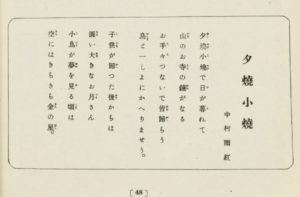 夕燒小燒
中村雨紅
夕燒小燒で日が暮れて
山のお寺の鐘がなる
お手々つないで皆歸ろ
烏と一しよにかへりませう。
子供が歸つた後からは
圓い大きなお月さん
小鳥が夢を見る頃は
空にはきらきら金の星。
[48]